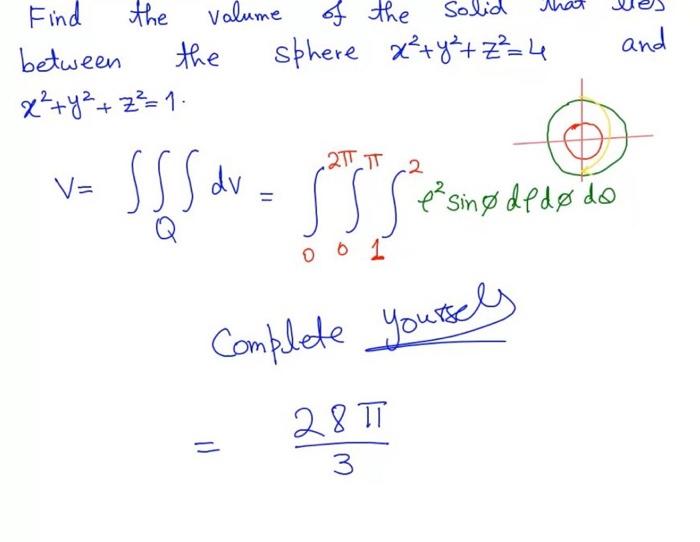 Find the volume of the solid that lies
between the sphere x²+y²+z²=4 and
x²+y²+z²=1.
V= ∭_Q dv = ∫₀^{2π} ∫₀^{π} ∫₁² ρ² sinø dρ dø dθ
Complete yourself
= 28π/3